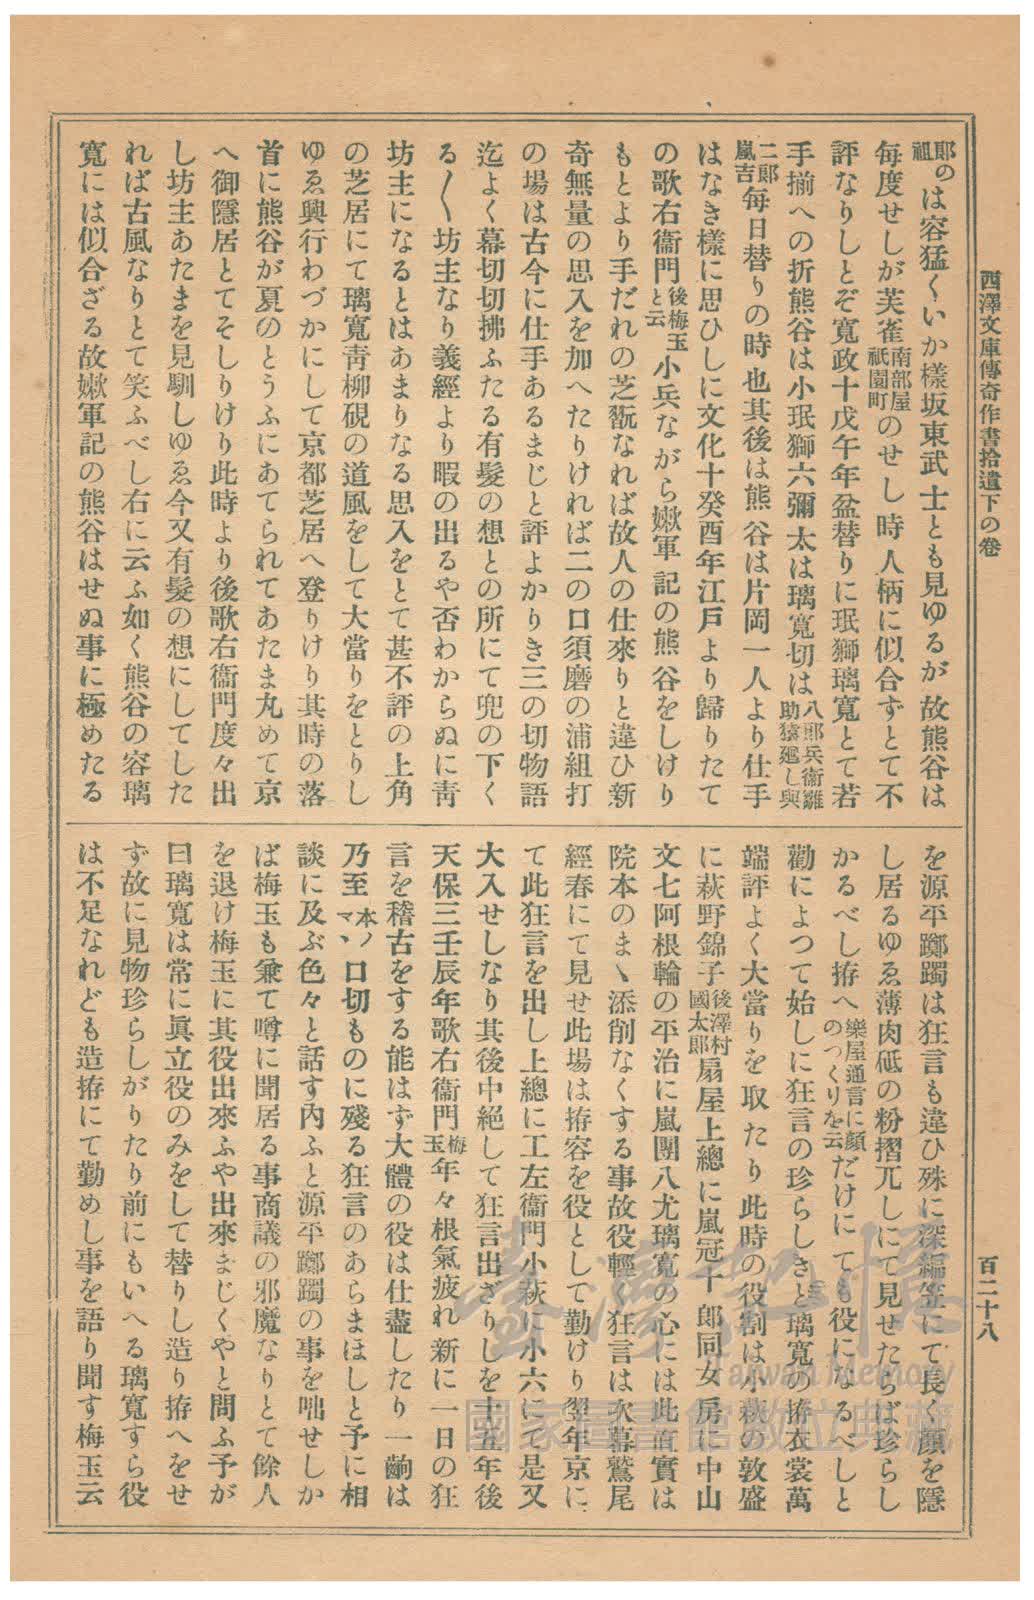 西澤文庫傳奇作書拾遺下の卷
百二十八
郎の祖は容猛くいか樣坂東武士とも見ゆるが故熊谷は
每度せしが芙雀南部屋祇園町のせし時人柄に似合ずとて不
評なりしとぞ寬政十戊午年盆替りに珉獅璃寬とて若
手揃への折熊谷は小珉獅六彌太は璃寬切は八郎兵衞雛助猿廻し與
二郎嵐吉每日替りの時也其後は熊谷は片岡一人より仕手
はなき樣に思ひしに文化十癸酉年江戶より歸りたて
の歌右衞門後梅玉と云小兵ながら嫩軍記の熊谷をしけり
もとより手だれの芝翫なれば故人の仕來りと違ひ新
奇無量の思入を加へたりければ二の口須磨の浦組打
の場は古今に仕手あるまじと評よかりき三の切物語
迄よく幕切切拂ふたる有髮の想との所にて兜の下く
る〱坊主なり義經より暇の出るや否わからぬに靑
坊主になるとはあまりなる思入をとて甚不評の上角
の芝居にて璃寬靑柳硯の道風をして大當りをとりし
ゆゑ興行わづかにして京都芝居へ登りけり其時の落
首に熊谷が夏のとうふにあてられてあたま丸めて京
へ御隱居とてそしりけり此時より後歌右衞門度々出
し坊主あたまを見馴しゆゑ今又有髮の想にしてした
れば古風なりとて笑ふべし右に云ふ如く熊谷の容璃
寬には似合ざる故嫩軍記の熊谷はせぬ事に極めたる
を源平躑躅は狂言も違ひ殊に深編笠にて長く顏を隱
し居るゆゑ薄肉砥の粉摺兀しにて見せたらば珍らし
かるべし拵へ樂屋通言に顏のつくりを云だけにても役になるべしと
勸によつて始しに狂言の珍らしきと璃寬の拵衣裳萬
端評よく大當りを取たり此時の役割は小萩の敦盛
に萩野錦子後澤村國太郎扇屋上總に嵐冠十郎同女房に中山
文七阿根輪の平治に嵐團八尤璃寬の心には此直實は
院本のまゝ添削なくする事故役輕く狂言は次幕鷲尾
經春にて見せ此場は拵容を役として勤けり翌年京に
て此狂言を出し上總に工左衞門小萩に小六にて是又
大入せしなり其後中絕して狂言出ざりしを十五年後
天保三壬辰年歌右衞門梅玉年々根氣疲れ新に一日の狂
言を稽古をする能はず大體の役は仕盡したり一齣は
乃至本ノマヽ口切ものに殘る狂言のあらまほしと予に相
談に及ぶ色々と話す內ふと源平躑躅の事を咄せしか
ば梅玉も兼て噂に聞居る事商議の邪魔なりとて餘人
を退け梅玉に其役出來ふや出來まじくやと問ふ予が
曰璃寬は常に眞立役のみをして替りし造り拵へをせ
ず故に見物珍らしがりたり前にもいへる璃寬すら役
は不足なれども造拵にて勤めし事を語り聞す梅玉云
臺灣記憶
Taiwan Memory
國家圖書館數位典藏